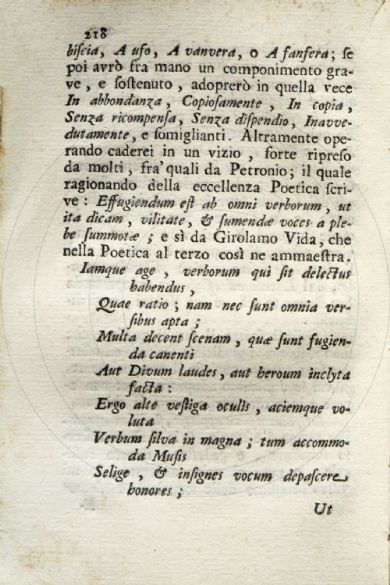 218
biscia, A ufo, A vanvera, o A fanfera; se
poi avrò fra mano un componimento gra-
ve, e sostenuto, adoprerò in quella vece
In abbondanza, Copiosamente, In copia,
Senza ricompensa, Senza dispendio, Inavve-
dutamente, e somiglianti. Altramente ope-
rando caderei in un vizio, forte ripreso
da molti, fra' quali da Petronio; il quale
ragionando della eccellenza Poetica scri-
ve: Effugiendum est ab omni verborum, ut
ita dicam, vilitate, & sumendæ voces a ple-
be summotæ; e sì da Girolamo Vida, che
nella Poetica al terzo così ne ammaestra.
Iamque age, verborum qui sit delectus
habendus,
Quae ratio; nam nec sunt omnia ver-
sibus apta;
Multa decent scenam, quæ sunt fugien-
da canenti
Aut Divum laudes, aut heroum inclyta
facta:
Ergo alte vestiga oculis, aciemque vo-
luta
Verbum silva in magna; tum accommo-
da Musis
Selige, & insignes vocum depascere
honores;
Ut